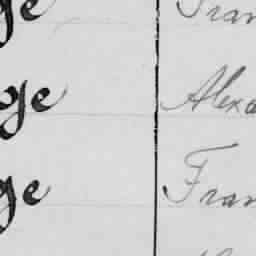 ge Fran
ge Alexa
ge Fran